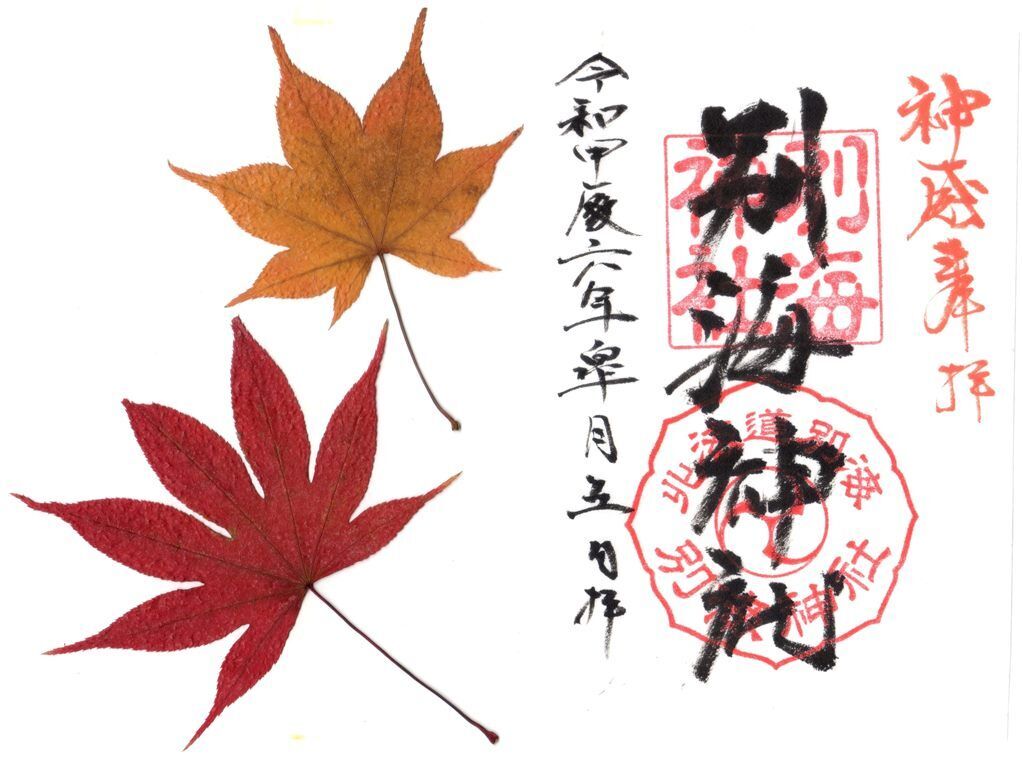 神威奉拝
別海神社
別海神社
北海道別海
別海神社
令和甲辰六年皐月五日拝